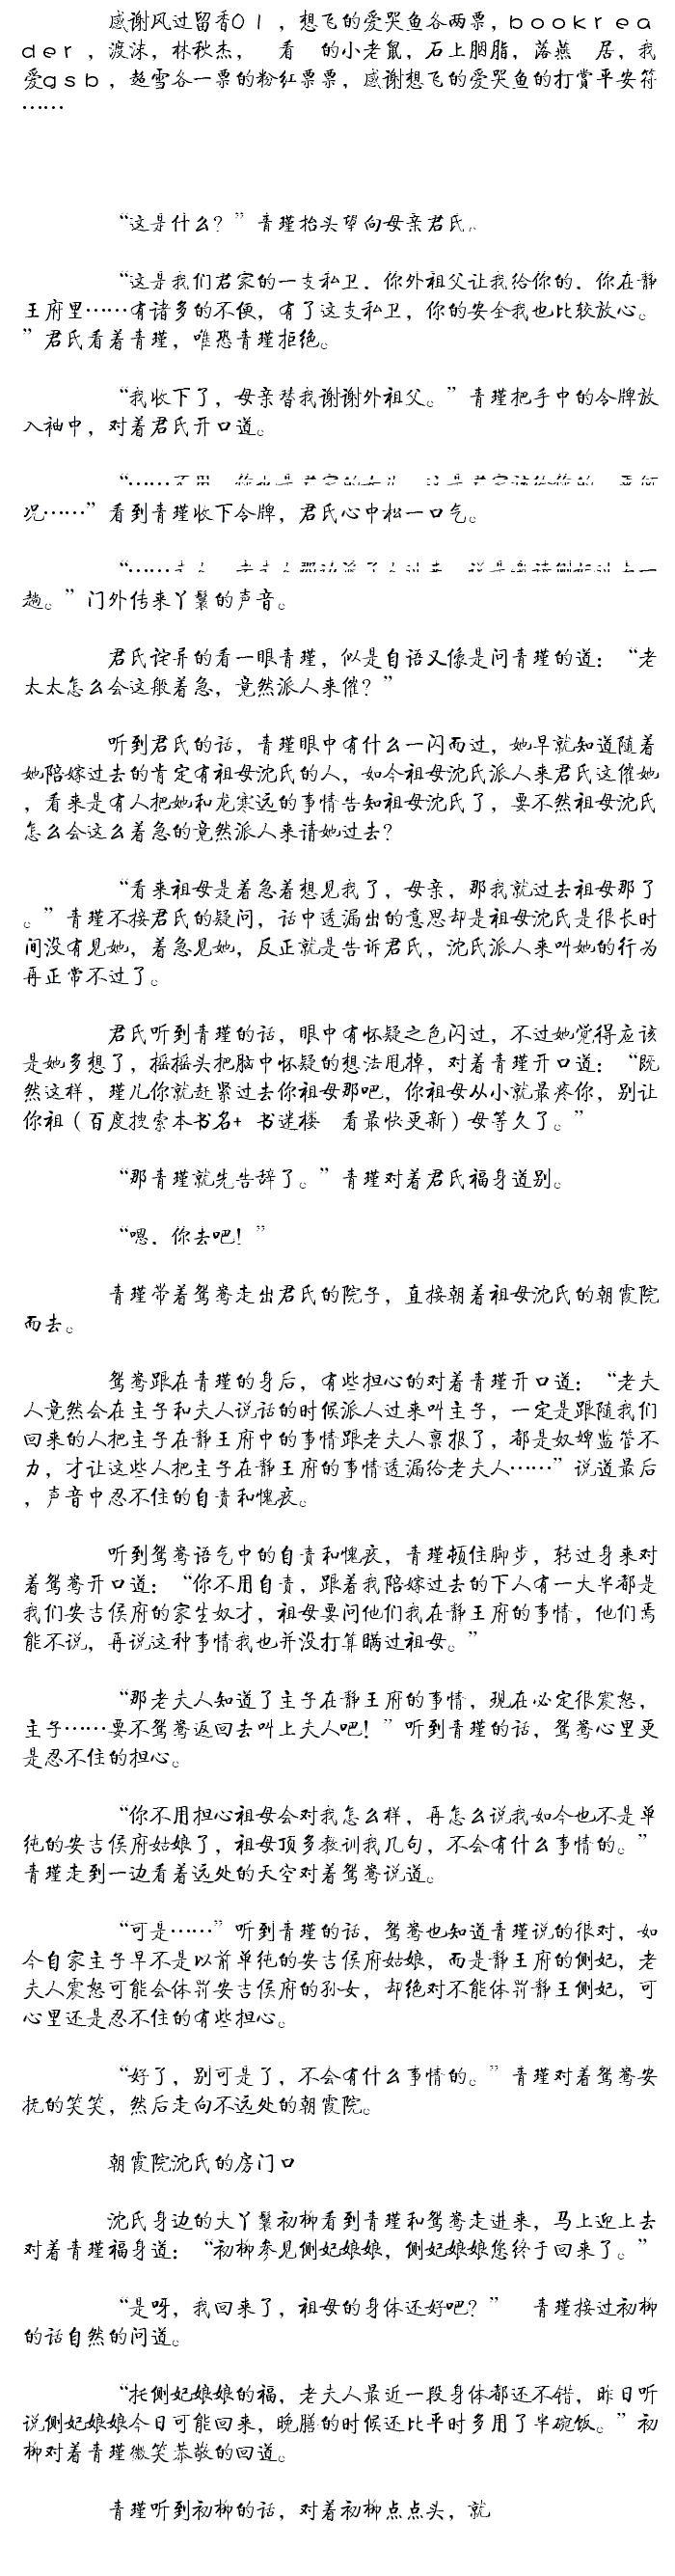 感谢风过留香01，想飞的爱哭鱼各两票，bookrea
der，渡沫，林秋杰， 看 的小老鼠，石上胭脂，落燕 居，我
爱gsb，超雪各一票的粉红票票，感谢想飞的爱哭鱼的打赏平安符
……
“这是什么？”青瑾抬头望向母亲君氏。
“这是我们君家的一支私卫，你外祖父让我给你的，你在静
王府里……有诸多的不便，有了这支私卫，你的安全我也比较放心。
”君氏看着青瑾，唯恐青瑾拒绝。
“我收下了，母亲替我谢谢外祖父。”青瑾把手中的令牌放
入袖中，对着君氏开口道。
“……
况……”看到青瑾收下令牌，君氏心中松一口气。
“……
趟。”门外传来丫鬟的声音。
君氏诧异的看一眼青瑾，似是自语又像是问青瑾的道：“老
太太怎么会这般着急，竟然派人来催？”
听到君氏的话，青瑾眼中有什么一闪而过，她早就知道随着
她陪嫁过去的肯定有祖母沈氏的人，如今祖母沈氏派人来君氏这催她
，看来是有人把她和龙寒远的事情告知祖母沈氏了，要不然祖母沈氏
怎么会这么着急的竟然派人来请她过去？
“看来祖母是着急着想见我了，母亲，那我就过去祖母那了
。”青瑾不接君氏的疑问，话中透漏出的意思却是祖母沈氏是很长时
间没有见她，着急见她，反正就是告诉君氏，沈氏派人来叫她的行为
再正常不过了。
君氏听到青瑾的话，眼中有怀疑之色闪过，不过她觉得应该
是她多想了，摇摇头把脑中怀疑的想法甩掉，对着青瑾开口道：“既
然这样，瑾儿你就赶紧过去你祖母那吧，你祖母从小就最疼你，别让
你祖（百度搜索本书名+ 书迷楼 看最快更新）母等久了。”
“那青瑾就先告辞了。”青瑾对着君氏福身道别。
“嗯，你去吧！”
青瑾带着鸳鸯走出君氏的院子，直接朝着祖母沈氏的朝霞院
而去。
鸳鸯跟在青瑾的身后，有些担心的对着青瑾开口道：“老夫
人竟然会在主子和夫人说话的时候派人过来叫主子，一定是跟随我们
回来的人把主子在静王府中的事情跟老夫人禀报了，都是奴婢监管不
力，才让这些人把主子在静王府的事情透漏给老夫人……”说道最后
，声音中忍不住的自责和愧疚。
听到鸳鸯语气中的自责和愧疚，青瑾顿住脚步，转过身来对
着鸳鸯开口道：“你不用自责，跟着我陪嫁过去的下人有一大半都是
我们安吉侯府的家生奴才，祖母要问他们我在静王府的事情，他们焉
能不说，再说这种事情我也并没打算瞒过祖母。”
“那老夫人知道了主子在静王府的事情，现在必定很震怒，
主子……要不鸳鸯返回去叫上夫人吧！”听到青瑾的话，鸳鸯心里更
是忍不住的担心。
“你不用担心祖母会对我怎么样，再怎么说我如今也不是单
纯的安吉侯府姑娘了，祖母顶多教训我几句，不会有什么事情的。”
青瑾走到一边看着远处的天空对着鸳鸯说道。
“可是……”听到青瑾的话，鸳鸯也知道青瑾说的很对，如
今自家主子早不是以前单纯的安吉侯府姑娘，而是静王府的侧妃，老
夫人震怒可能会体罚安吉侯府的孙女，却绝对不能体罚静王侧妃，可
心里还是忍不住的有些担心。
“好了，别可是了，不会有什么事情的。”青瑾对着鸳鸯安
抚的笑笑，然后走向不远处的朝霞院。
朝霞院沈氏的房门口
沈氏身边的大丫鬟初柳看到青瑾和鸳鸯走进来，马上迎上去
对着青瑾福身道：“初柳参见侧妃娘娘，侧妃娘娘您终于回来了。”
“是呀，我回来了，祖母的身体还好吧？” 青瑾接过初柳
的话自然的问道。
“托侧妃娘娘的福，老夫人最近一段身体都还不错，昨日听
说侧妃娘娘今日可能回来，晚膳的时候还比平时多用了半碗饭。”初
柳对着青瑾微笑恭敬的回道。
青瑾听到初柳的话，对着初柳点点头，就